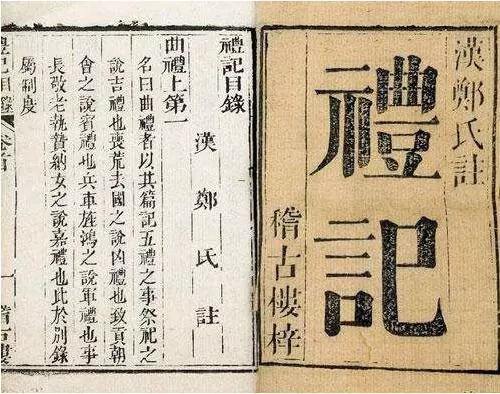 漢鄭氏註
禮記
稽古樓梓
禮記目錄
漢鄭氏註
曲禮上第一
名曰曲禮者以其篇記五禮之事祭祀之
說吉禮也喪荒去國之說凶禮也致貢朝
會之說賓禮也兵車旌鴻之說軍禮也事
長敬老執贄納女之說嘉禮也此於別錄
屬制度
禮記目錄
卷首
一
稽古樓